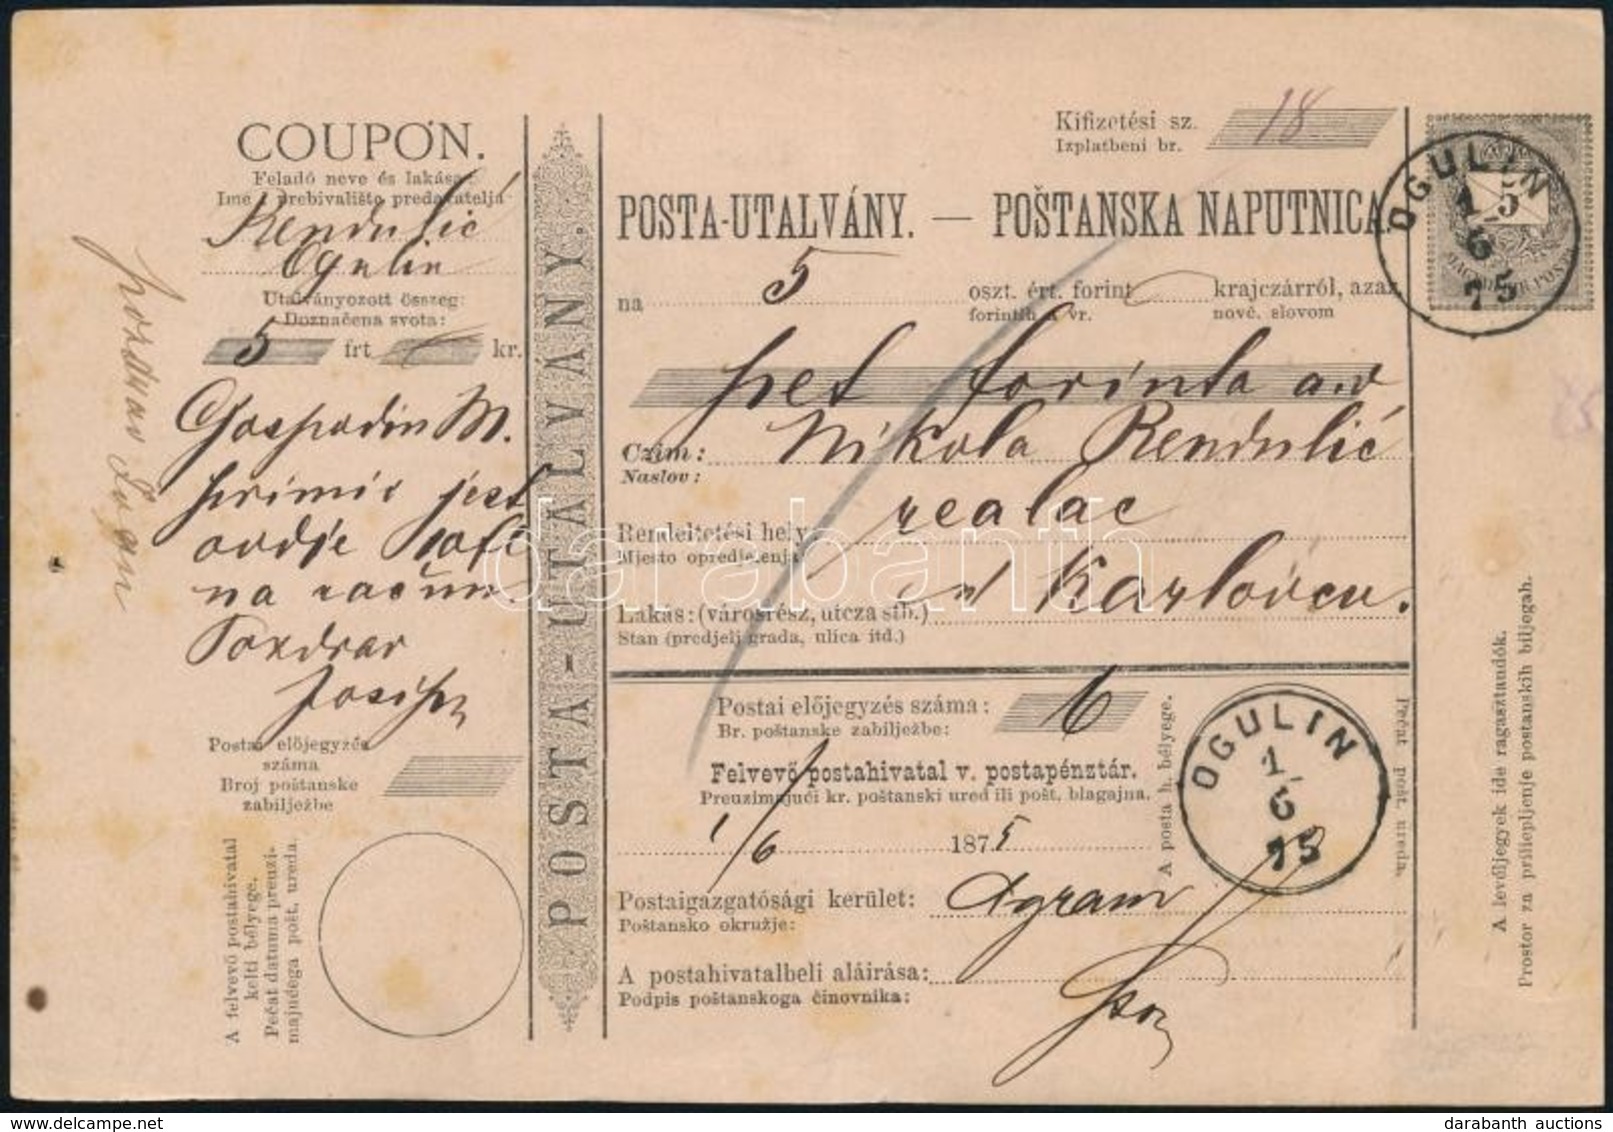 COUPON.
Feladó neve és lakása
Ime i prebivalište predavatelja
Rendulić
Ogulin
Utalványozott összeg:
Doznačena svota:
5 frt kr.
Gospodin M.
primie jest
ovdje
na račun.
Pozdrav
Josip
pozdrav
Postai előjegyzés
száma
Broj poštanske
zabilježbe
A felvevő postahivatal
kelti bélyege.
Pečat datuma preuzi-
majućega pošt. ureda.
POSTA-UTALVÁNY.
Kifizetési sz.
Izplatbeni br.
18
POSTA-UTALVÁNY. — POŠTANSKA NAPUTNICA.
na 5 oszt. ért. forint krajczárról, azaz
forintih a vr. novč. slovom
pet forinta a.v
Czím: Nikola Rendulić
Naslov:
Rendeltetési hely: realac
Mjesto opredjelenja
Lakás: (városrész, utcza stb.) u Karlovcu.
Stan (predjelj grada, ulica itd.)
Postai előjegyzés száma: 6
Br. poštanske zabilježbe:
Felvevő postahivatal v. postapénztár.
Preuzimajući kr. poštanski ured ili pošt. blagajna.
1/6 1875
Postaigazgatósági kerület: Agram
Poštansko okružje:
A postahivatalbeli aláírása:
Podpis poštanskoga činovnika:
A posta h. bélyege.
Pečat pošt. ureda.
OGULIN
1/6
75
5
MAGYAR KIR. POSTA
OGULIN
1/6
75
A levéljegyek ide ragasztandók.
Prostor za priliepljenje postanskih biljegah.
darabanth
delcampe.net
darabanth auctions